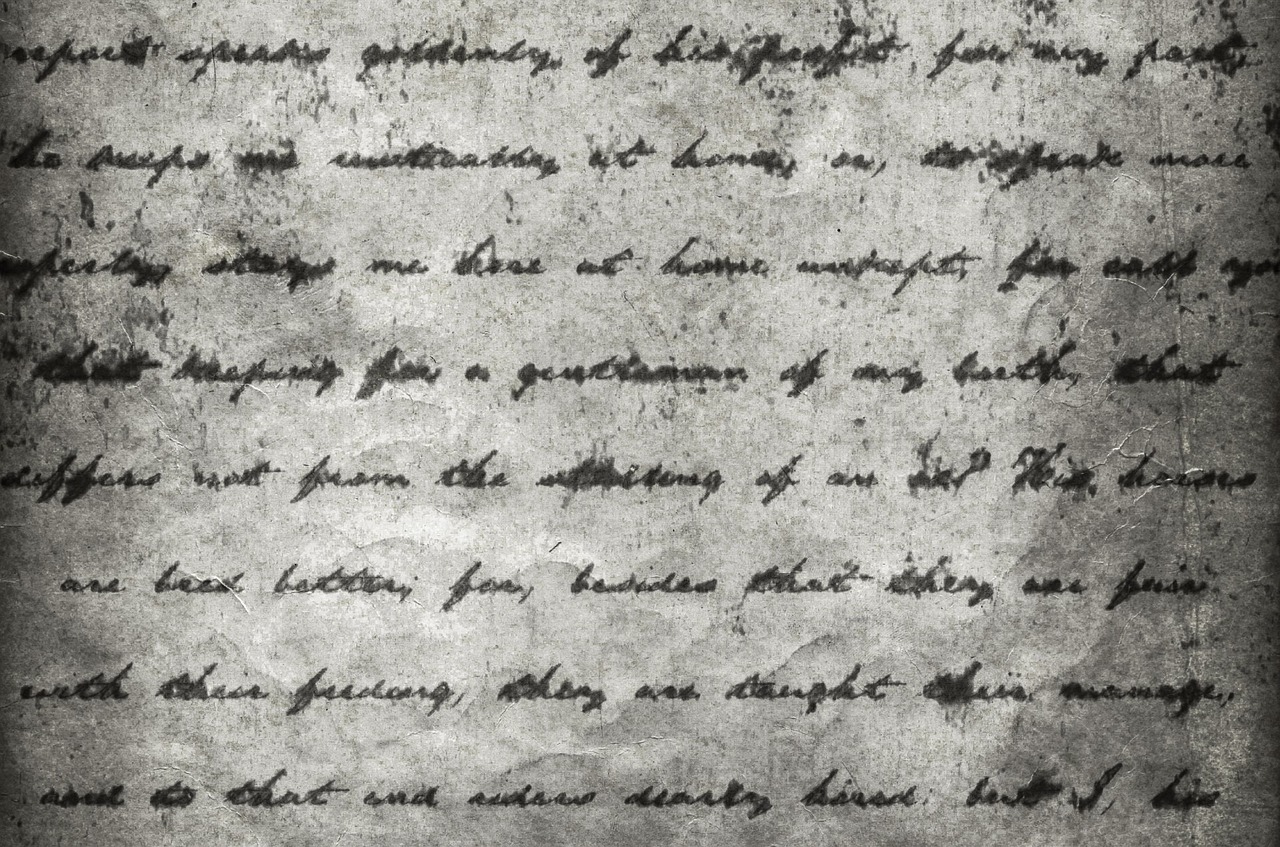 report speaks goldenly of his profit for my part,
he keeps me rustically at home, or, to speak more
properly, stays me here at home unkept; for call you
that keeping for a gentleman of my birth, that
differs not from the stalling of an ox? His horses
are bred better; for, besides that they are fair
with their feeding, they are taught their manage,
and to that end riders dearly hired: but I, his